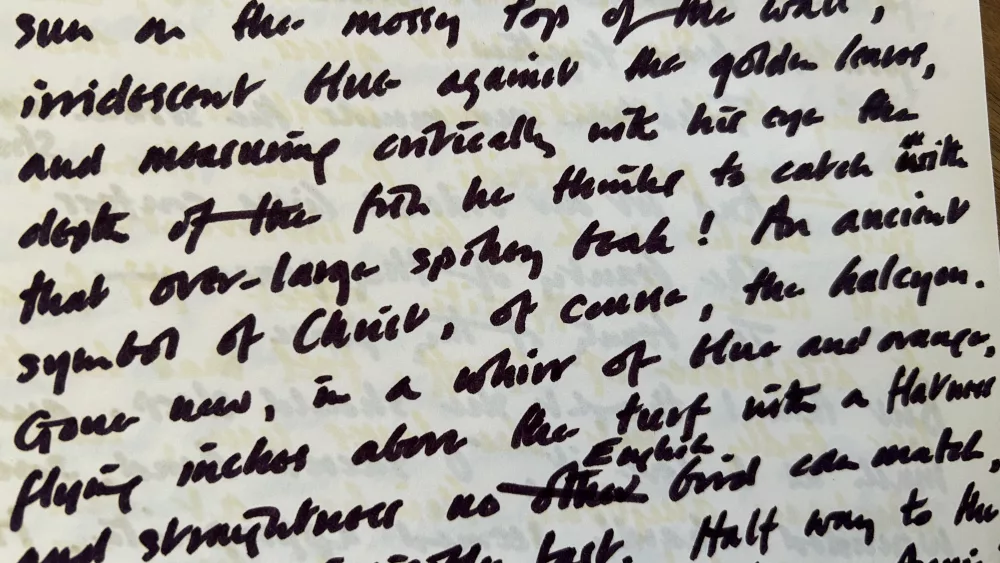 sun on the mossy top of the wall,
irridescent blue against the golden leaves,
and measuring critically with his eye the
depth of the fish he thinks to catch with
that over-large spikey beak! An ancient
symbol of Christ, of course, the halcyon.
Gone now, in a whirr of blue and orange,
flying inches above the turf with a flatness
English
and straightness no other bird can match,
fast. Half way to the